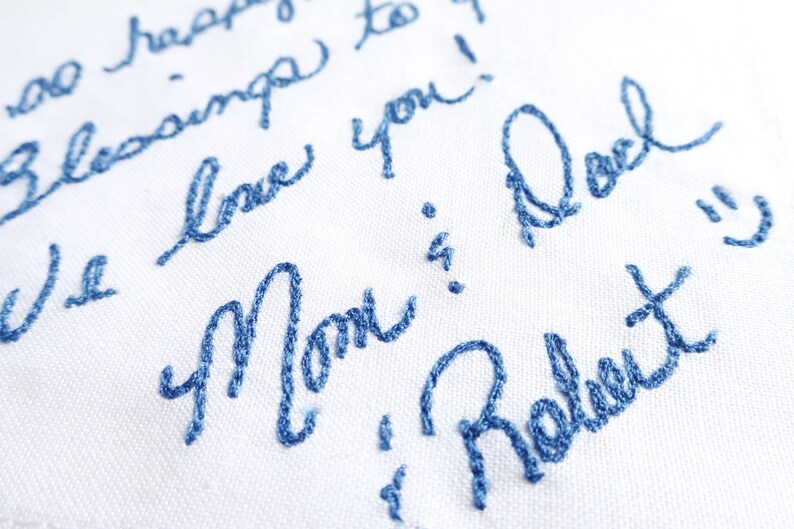 so happy
Blessings to
We love you!
Mom & Dad
& Robert :)